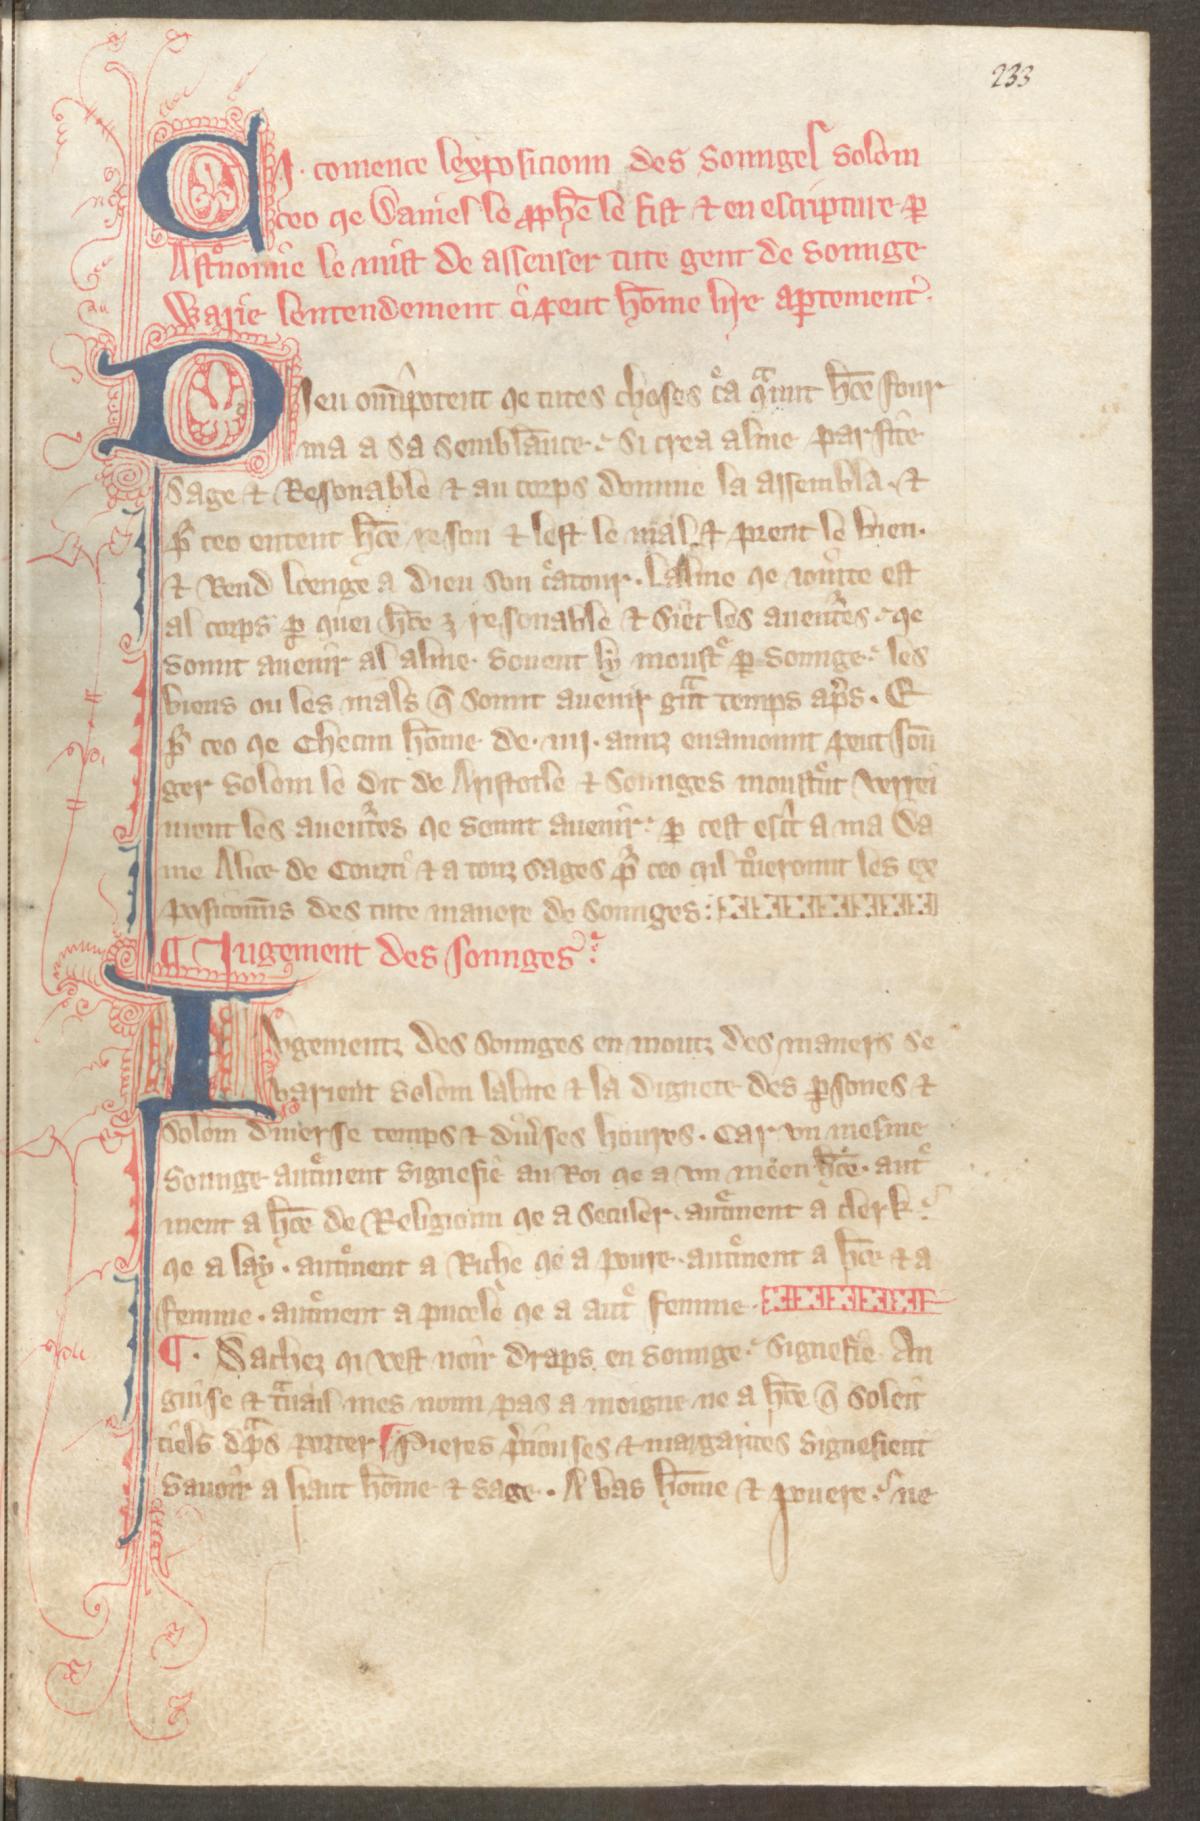 233
CI. comence lexposicioun des sounges solom
ceo qe Daniel le ꝓphē le fist ⁊ en escripture ꝑ
Astᵒnomie le mist de assenser tute gent de sounge
Warie lentendement ci peut hōme lire aꝑtement
Dieu omīpotent qe tutes choses cͤa hc̄e four
ma a sa semblance Si crea alme parfite
Sage ⁊ Resonable ⁊ au corps domme la assembla. ⁊
pͬ ceo entent hc̄e reson ⁊ lest le mal ⁊ prent le bien.
⁊ Rend loenge a Dieu son cͤatour. Lalme qe est
al corps ꝑ quei hc̄e ⁊ resonable ⁊ les auentͬes. qe
sount auenir al alme. souent ly moustͤ ꝑ sounge les
biens ou les mals q̄ sount auenir gͣnt temps apͤs. E
pͬ ceo qe Checun hōme de. iiij. aunz enamount peut soū
ger solom le dit de Aristotle ⁊ Sounges moustͤnt verrei
ment les auentͬes qe sount auenir ꝑ cest escͥt a ma Da
me Alice de Courti ⁊ a touz sages pͬ ceo qil tͦueront les ex
posiciouns des tute manere de sounges
¶ Iugement des sounges
Iugementz des sounges en moutz des maners se
varient solom labite ⁊ la dignete des ꝑsones ⁊
solom diuerse temps ⁊ diuͤses houres. Car vn mesme
Sounge autͤment signefie au Roi qe a vn meen hc̄e. autͤ
ment a hc̄e de Religioun qe a seculer. autͤment a clerk
qe a lay. autͤment a Riche qe a poure. autͤment a hc̄e ⁊ a
femme. autͤment a pucele qe a autͤ femme.
¶. Sachez qi vest noir draps en sounge signefie An
guise ⁊ tͣuail mes noun pas a moigne ne a hc̄e q̄ soleit
tiels dͣps porter ¶ Pieres pͤciouses ⁊ margarites signefient
sauoir a haut hōme ⁊ sage. A bas hōme ⁊ pouere ne